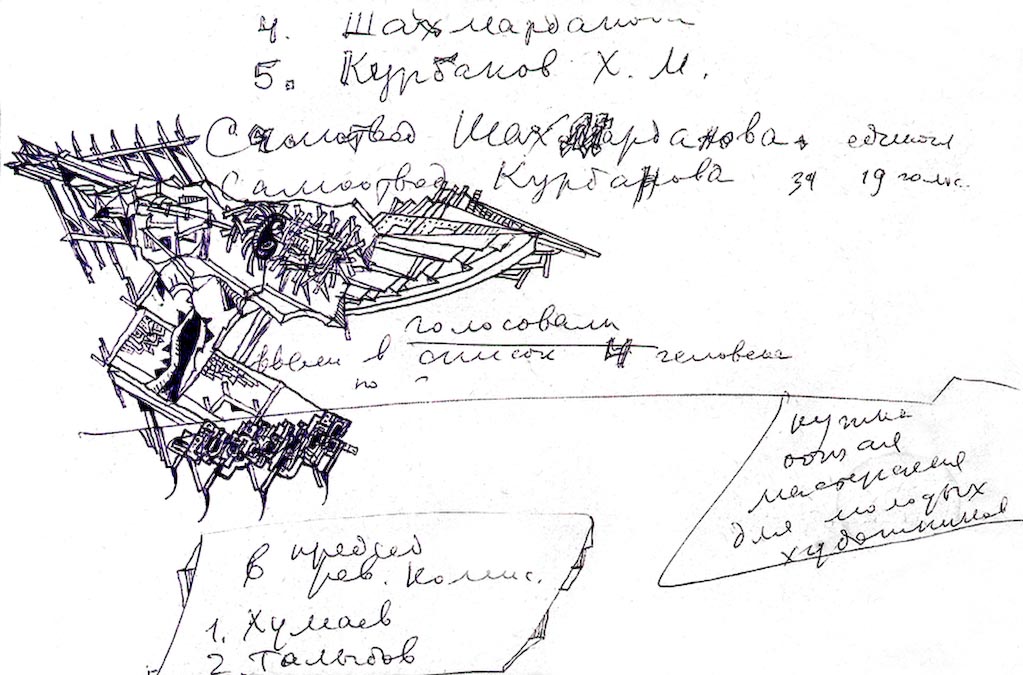 4. Шахмарданов
5. Курбанов Х. М.
Самоотвод Шахмарданова
Самоотвод Курбанова за 19 голос.
голосовали
ввели в список 4 человека
по
нужна
общая
мастерская
для молодых
художников
В председ
рев. Комис.
1. Хумаев
2. Талыбов